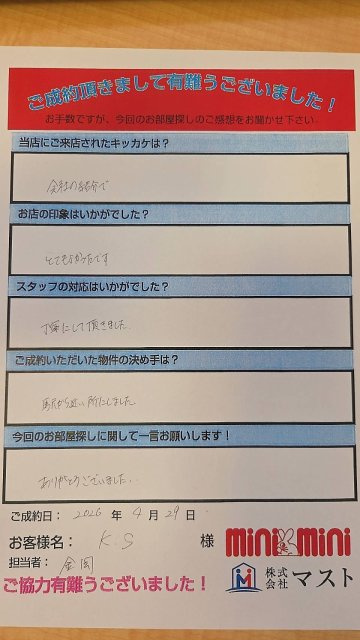 ご成約頂きまして有難うございました！
お手数ですが、今回のお部屋探しのご感想をお聞かせ下さい
当店にご来店されたキッカケは？
会社の紹介で
お店の印象はいかがでした？
とてもよかったです
スタッフの対応はいかがでした？
丁寧にして頂きました
ご成約いただいた物件の決め手は？
駅から近い所にしました
今回のお部屋探しに関して一言お願いします！
ありがとうございました..
ご成約日： 2026 年 4 月 29 日
お客様名： K.S 様
mini mini
担当者：
株式会社 マスト
ご協力有難うございました！